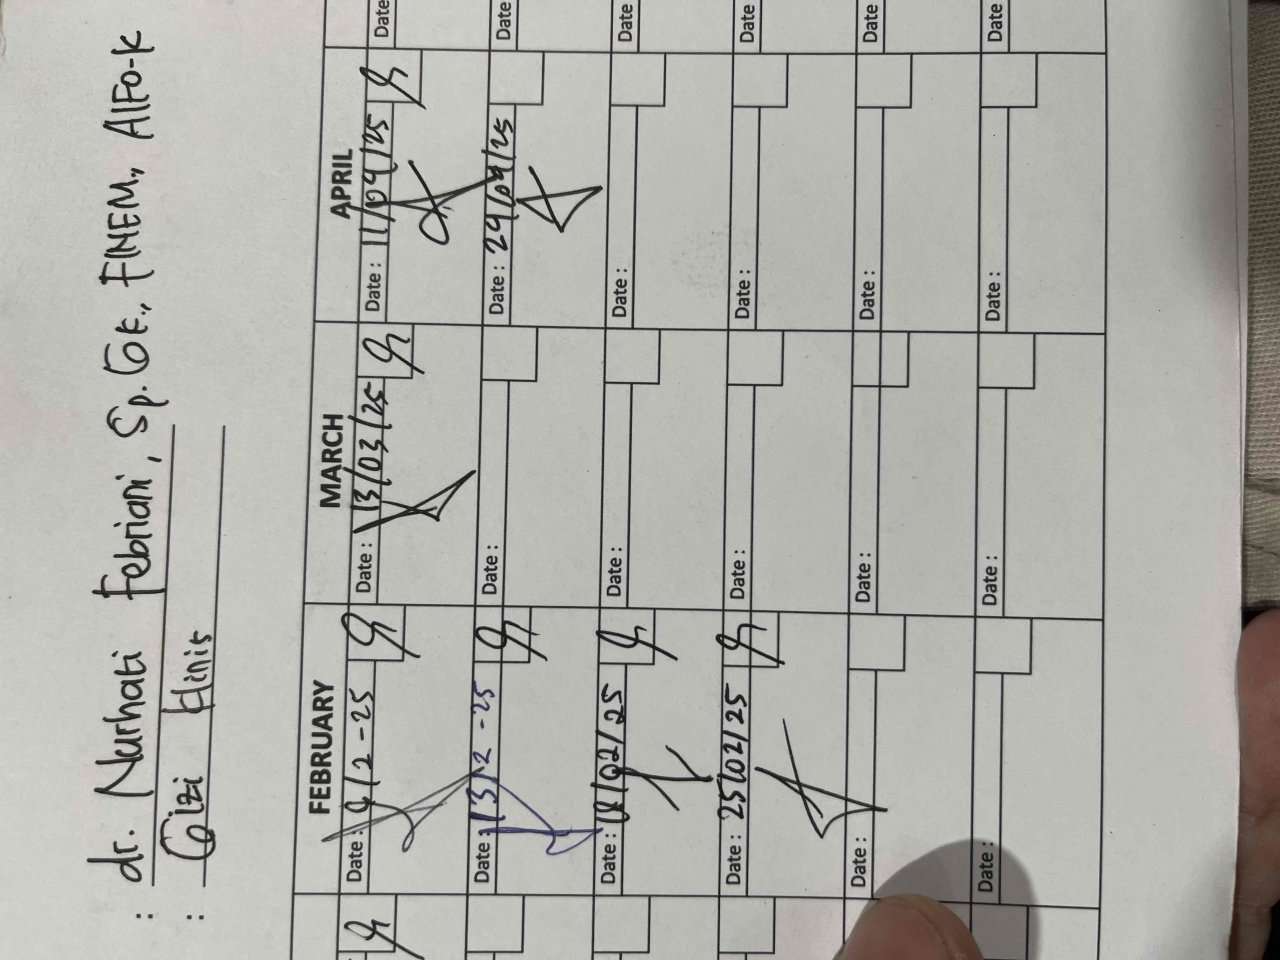 : dr. Nurhati Febriani, Sp. GK., FINEM., AIFO-K
: Gizi Klinis
FEBRUARY MARCH APRIL
Date : /2-25 Date : 13/03/25 Date : 11/04/25 Date
Date : 13/2-25 Date : Date : 24/04/25 Date
Date : 18/02/25 Date : Date : Date
Date : 25/02/25 Date : Date : Date
Date : Date : Date : Date
Date : Date : Date : Date